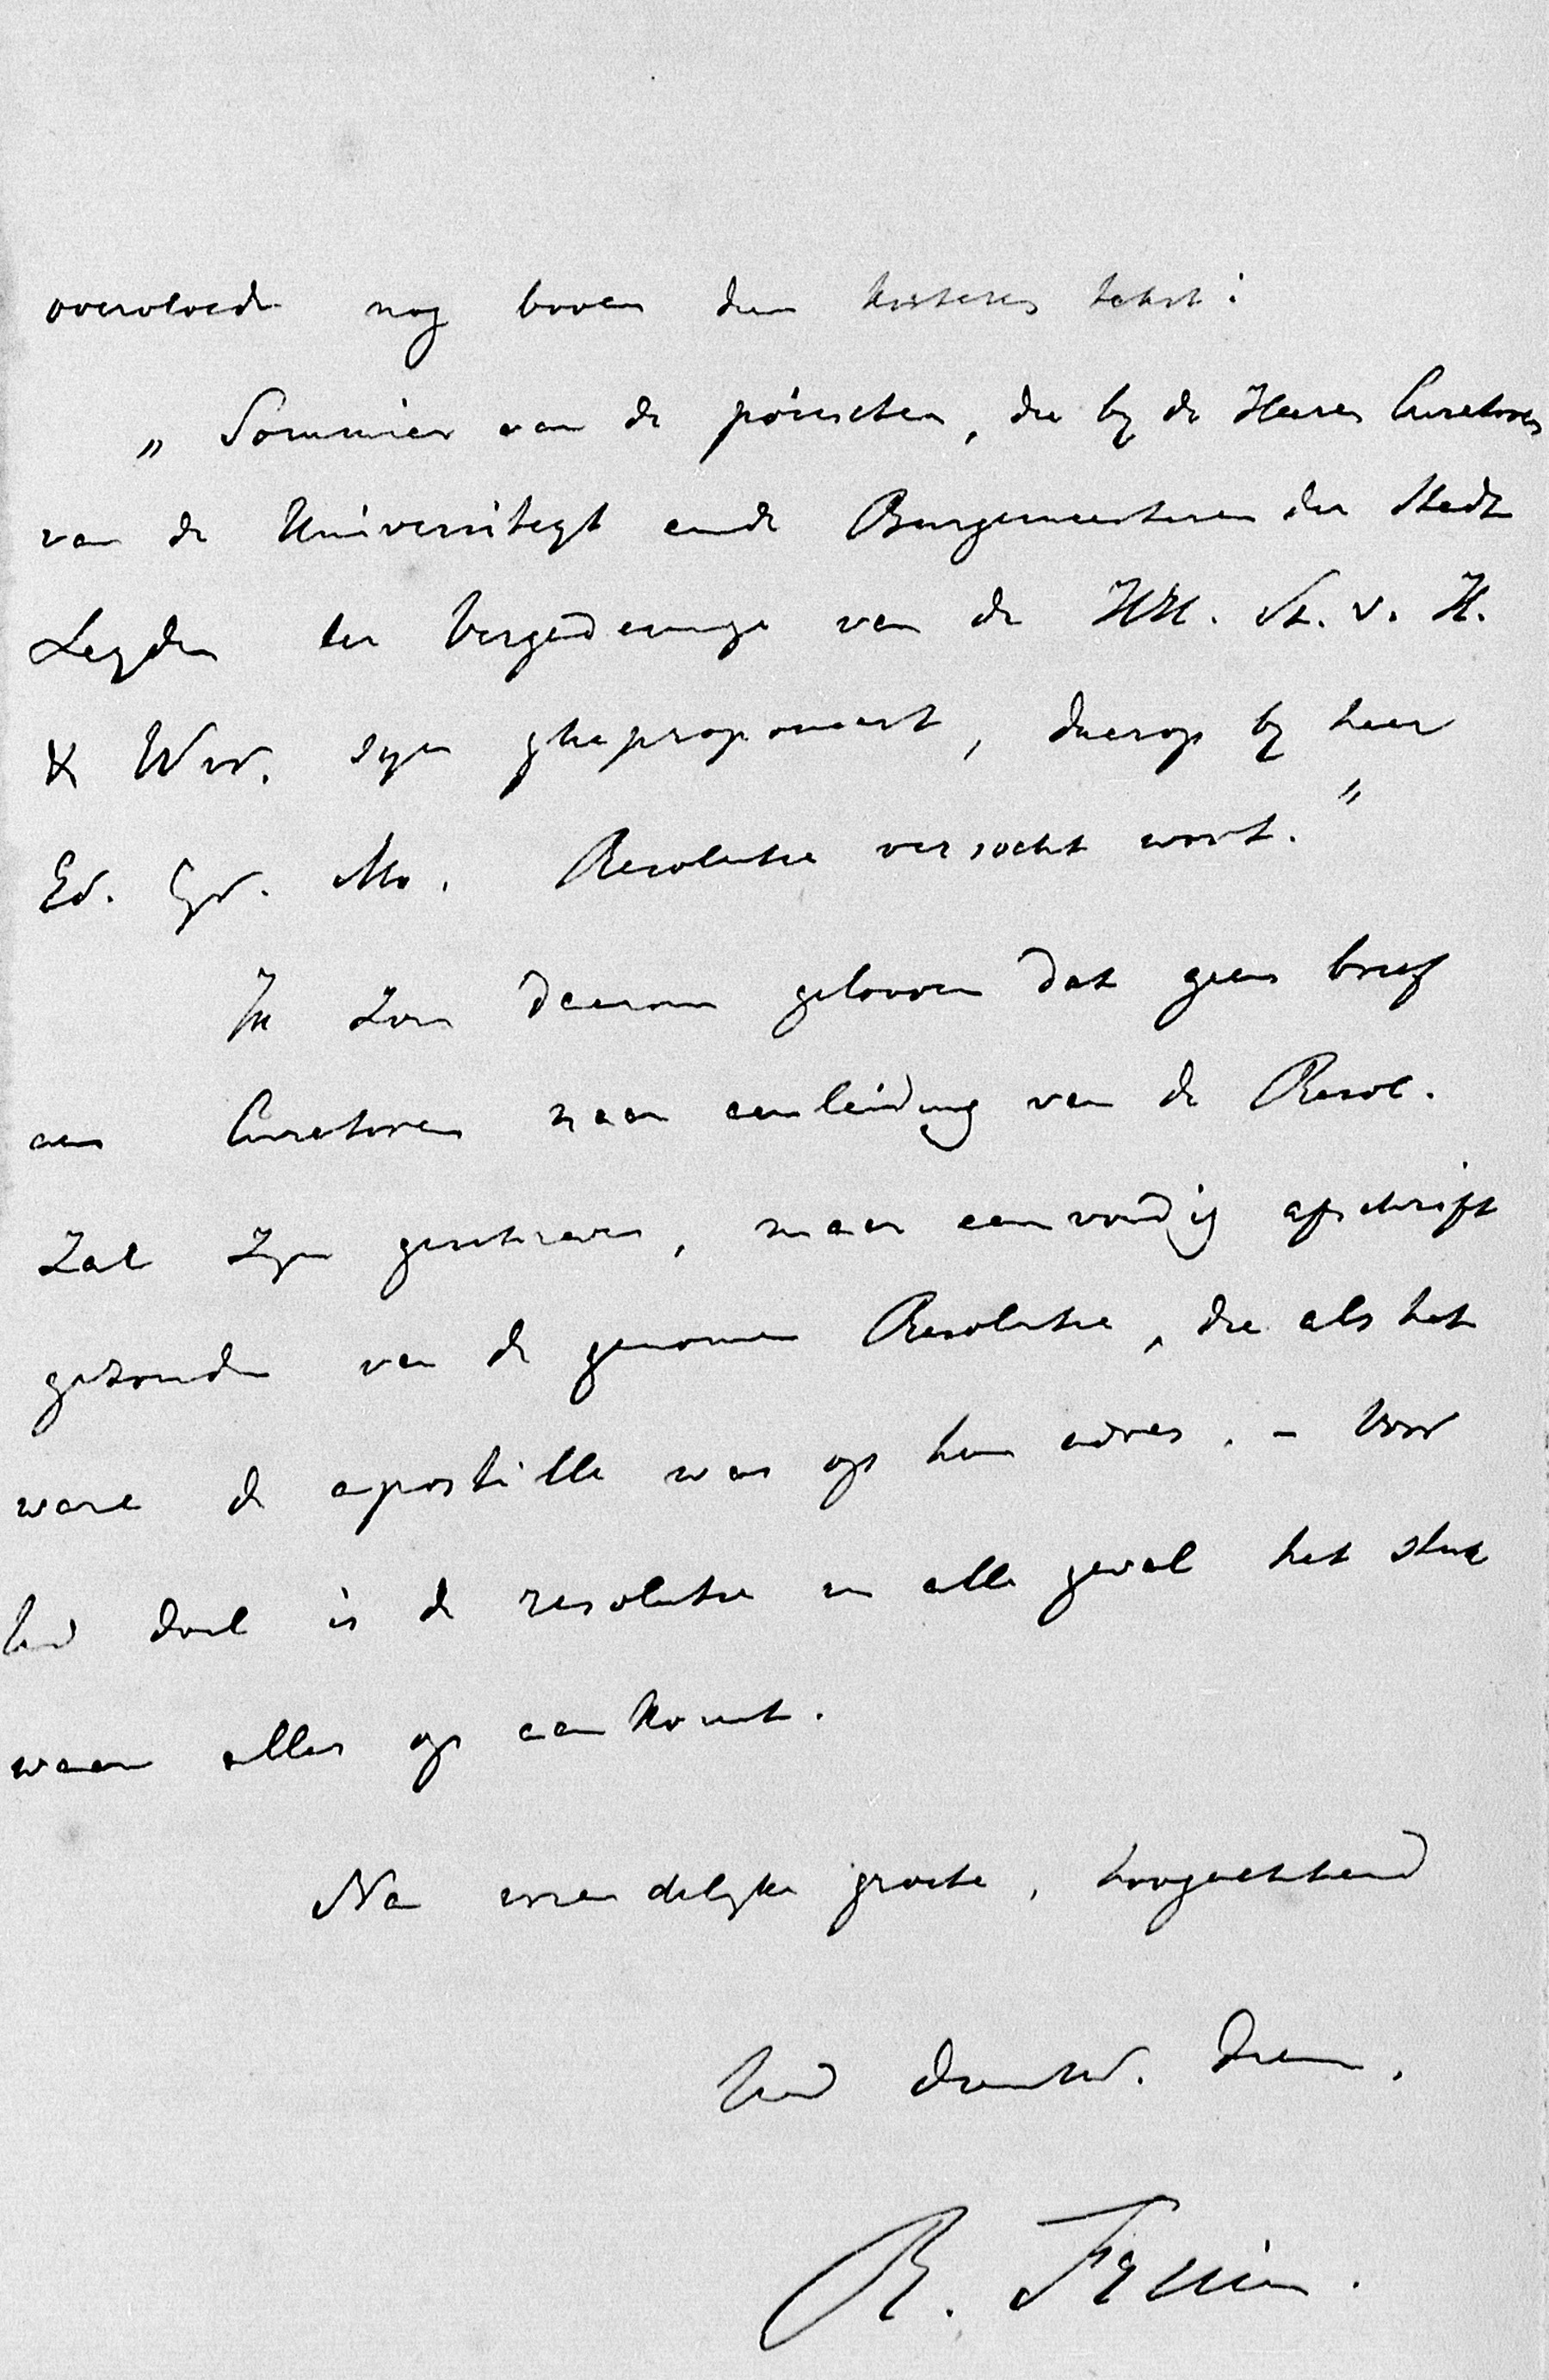 overvloede nog boven den tekst:
„ Sommier van de poincten, die by de Heeren Curatoren
van de Universiteyt ende Burgermeesteren der Stadt
Leyden ter Vergaderinge van de HH. St. v. H.
& Wvr. syn gheproponeert, daerop by haer
Ed. Gr. Mo. Resolutie versocht wort."
Ik zou daarom gelooven dat geen brief
aan Curatoren naar aanleiding van de Resol.
zal zyn geschreven, maar eenvoudig afschrift
gezonden van de genomen Resolutie, die als het
ware de apostille was op hun adres. – Voor
Uw doel is de resolutie in alle geval het stuk
waar alles op aankomt.
Na vriendelyke groete, hoogachtend
Uw dienstw. dien.
R. Fruin.